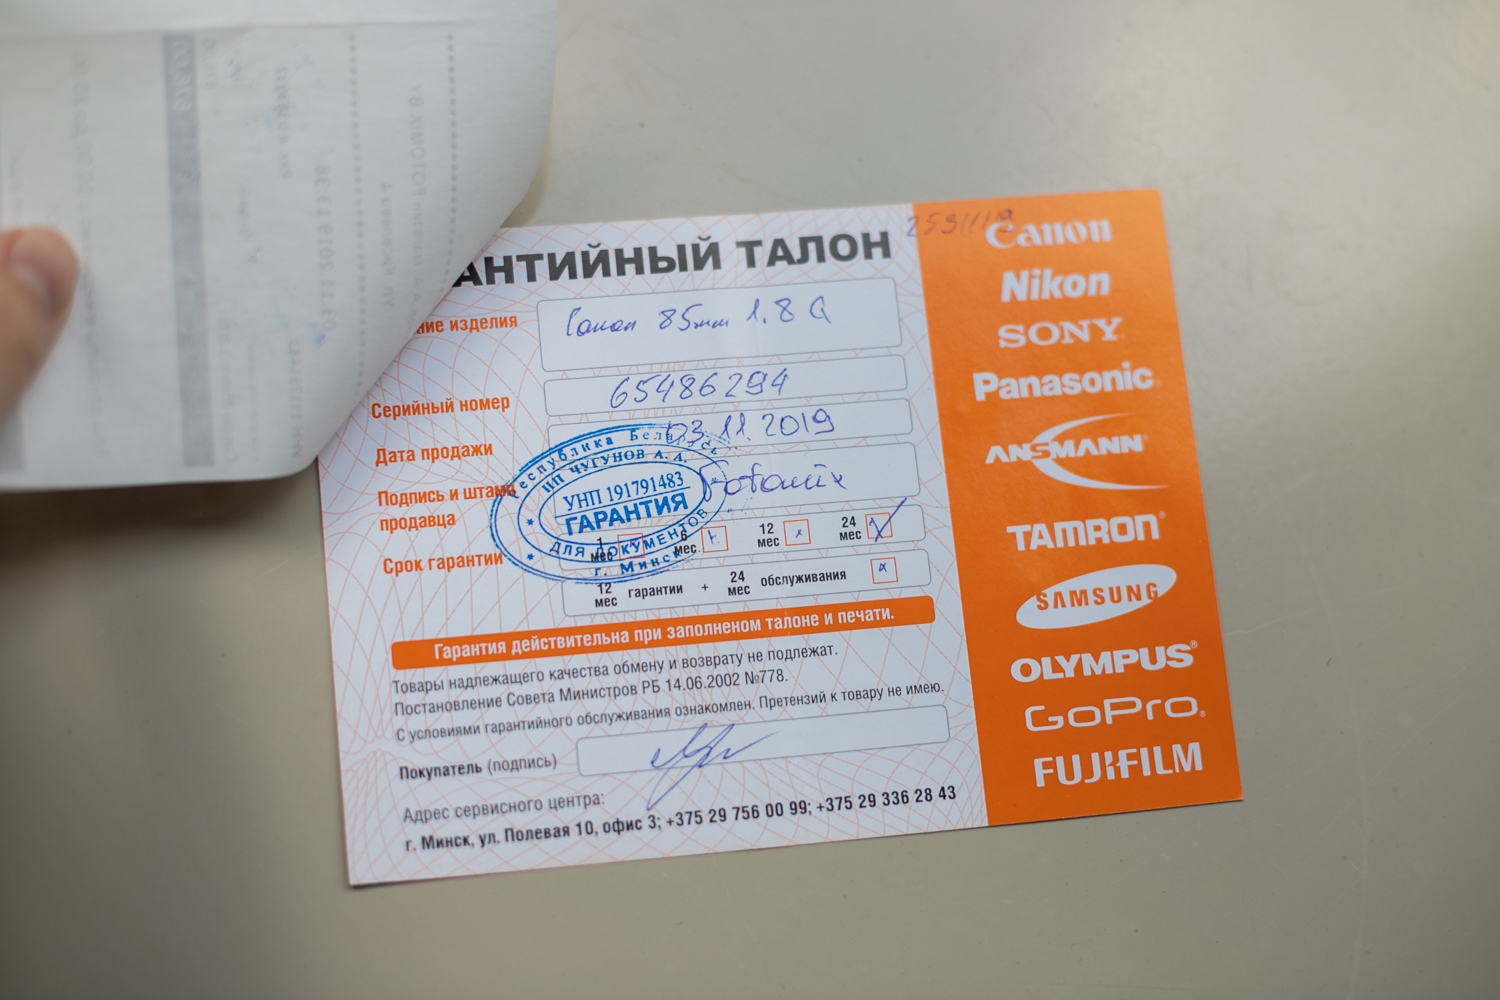 АНТИЙНЫЙ ТАЛОН
ние изделия
Canon 85mm 1.8 G
Серийный номер
65486294
Дата продажи
03.11.2019
Подпись и штамп
продавца
Fotomix
Республика Беларусь
ИП ЧУГУНОВ А. А.
УНП 191791483
ГАРАНТИЯ
ДЛЯ ДОКУМЕНТОВ
г. Минск
Срок гарантии
1 мес 6 мес 12 мес 24 мес
12 мес гарантии + 24 мес обслуживания
Гарантия действительна при заполненом талоне и печати.
Товары надлежащего качества обмену и возврату не подлежат.
Постановление Совета Министров РБ 14.06.2002 №778.
С условиями гарантийного обслуживания ознакомлен. Претензий к товару не имею.
Покупатель (подпись)
Адрес сервисного центра:
г. Минск, ул. Полевая 10, офис 3; +375 29 756 00 99; +375 29 336 28 43
Canon
Nikon
SONY
Panasonic
ANSMANN
TAMRON
SAMSUNG
OLYMPUS
GoPro
FUJIFILM